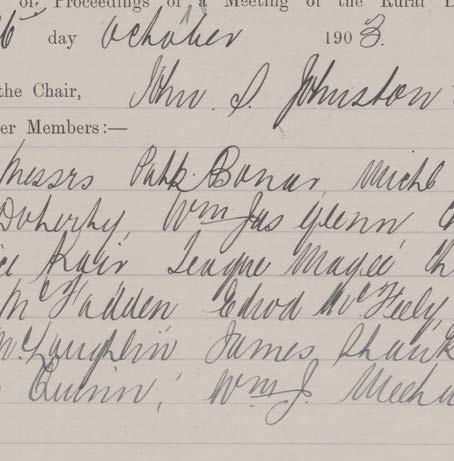 of Proceedings of a Meeting of the Rural D
6 day October 1903.
the Chair, John. S. Johnston
er Members:—
Messrs Patk Bonar, Michl
Doherty, Wm Jas Glenn
Kair Teague Magee Ch
McFadden Edwd McFeely,
McLaughlin James Shank
Quinn, Wm J. Meeha